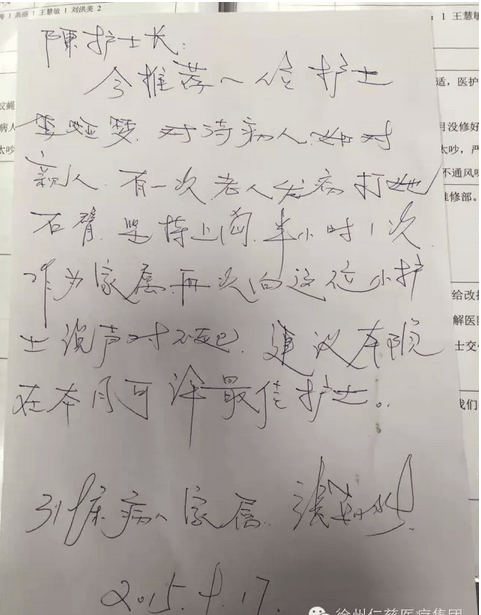 陳护士长:
今推荐一位护士
李娅梦. 对待病人如对
亲人. 有一次老人发病打她
右臂. 坚持上岗. 半小时1次.
作为家属再次向这位小护
士说声对不起. 建议本院
在本月可评最佳护士。
31床病人家属. 
2015.4.17.
徐州仁慈医疗集团
1 王慧敏 1 刘洪美 2
1 王慧敏
适，医护
月没修好
太吵，严
不通风
维修部。
给改
解医
士交
我们